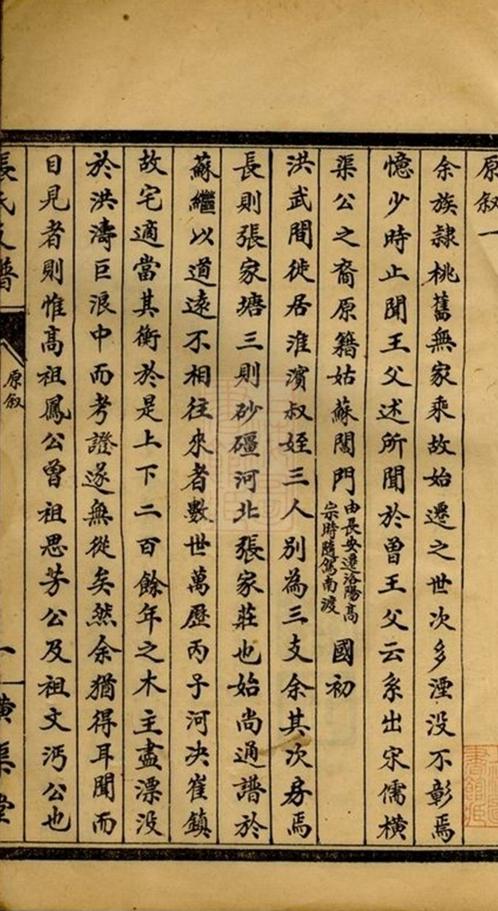 原叙一
余族隷桃舊無家乘故始遷之世次多湮没不彰焉
憶少時止聞王父述所聞於曾王父云系出宋儒橫
渠公之裔原籍姑蘇閶門由長安遷洛陽高宗時隨駕南渡國初
洪武間徙居淮濱叔姪三人别為三支余其次房焉
長則張家塘三則砂礓河北張家莊也始尚通譜於
蘇繼以道遠不相往來者數世萬歷丙子河决崔鎮
故宅適當其衝於是上下二百餘年之木主盡漂没
於洪濤巨浪中而考證遂無從矣然余猶得耳聞而
目見者則惟高祖鳳公曾祖思芳公及祖文沔公也
張氏支譜
原叙
一
橫渠堂